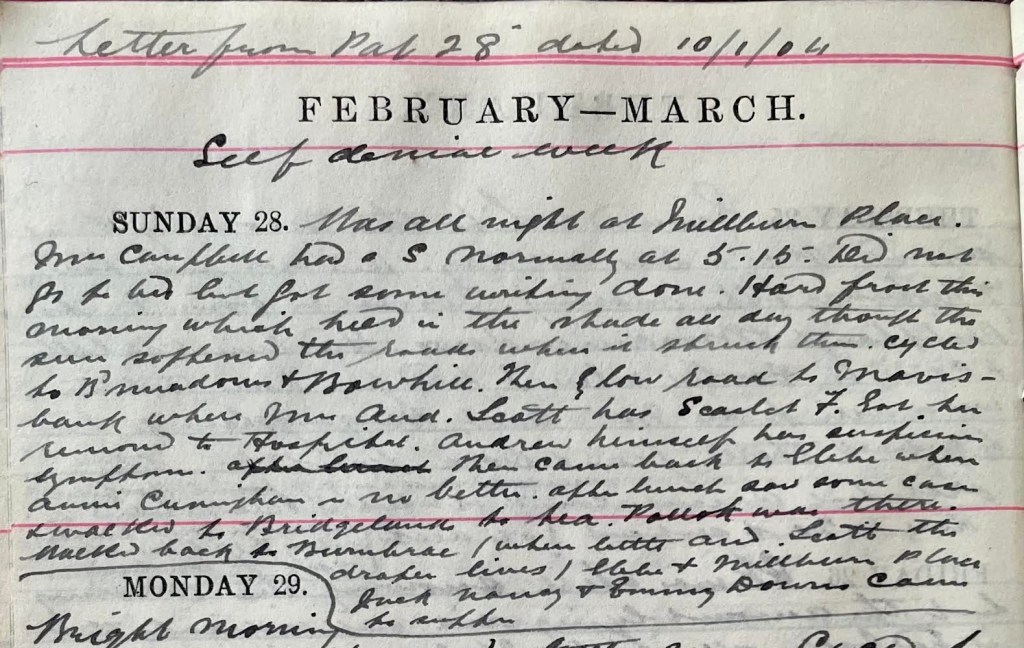 Letter from Pat 28th dated 10/1/04
FEBRUARY—MARCH.
Self denial week
SUNDAY 28. Was all night at Millburn Place.
Mrs Campbell had a S normally at 5.15. Did not
go to bed but got some writing done. Hard frost this
morning which held in the shade all day though the
sun softened the roads when it struck them. Cycled
to B'meadows & Bowhill. Then by low road to Mavis-
bank where Mrs And. Scott has Scarlet F. Got her
removed to Hospital. Andrew himself has suspicious
symptoms. after lunch Then came back to Glebe where
Annie Cunningham is no better. After lunch saw some cases
& walked to Bridgelands to tea. Pollok was there.
Walked back to Burnbrae (where little And. Scott the
draper lives) Glebe & Millburn Place
Jack Nancy & Emmy Downs came
to supper
MONDAY 29.
Bright morning